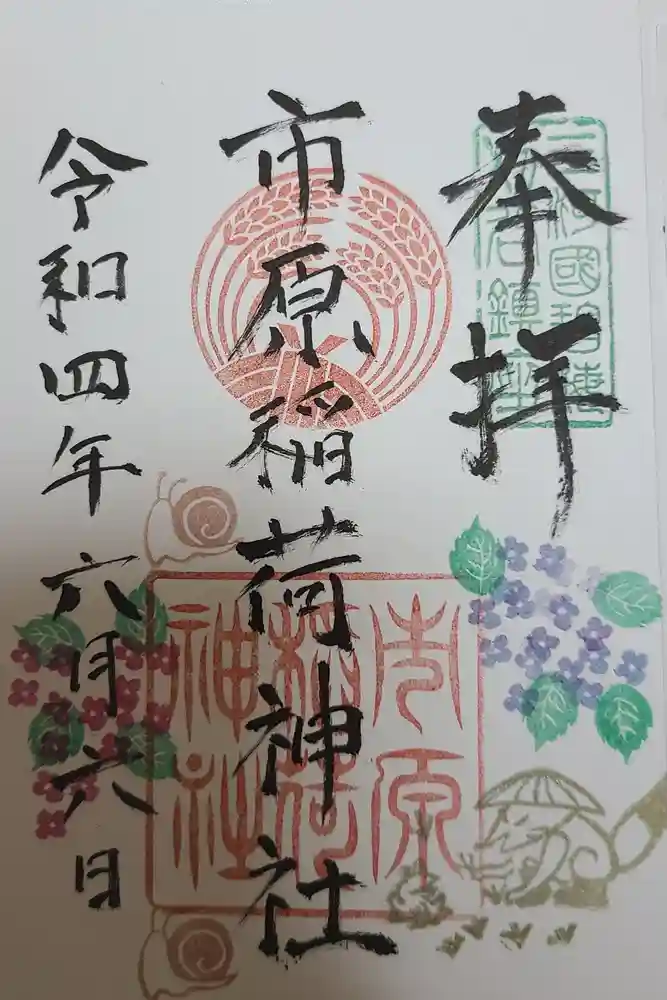 奉拝
三河國碧海
谷鎮座
市原稲荷神社
市原
稲荷
神社
令和四年六月六日